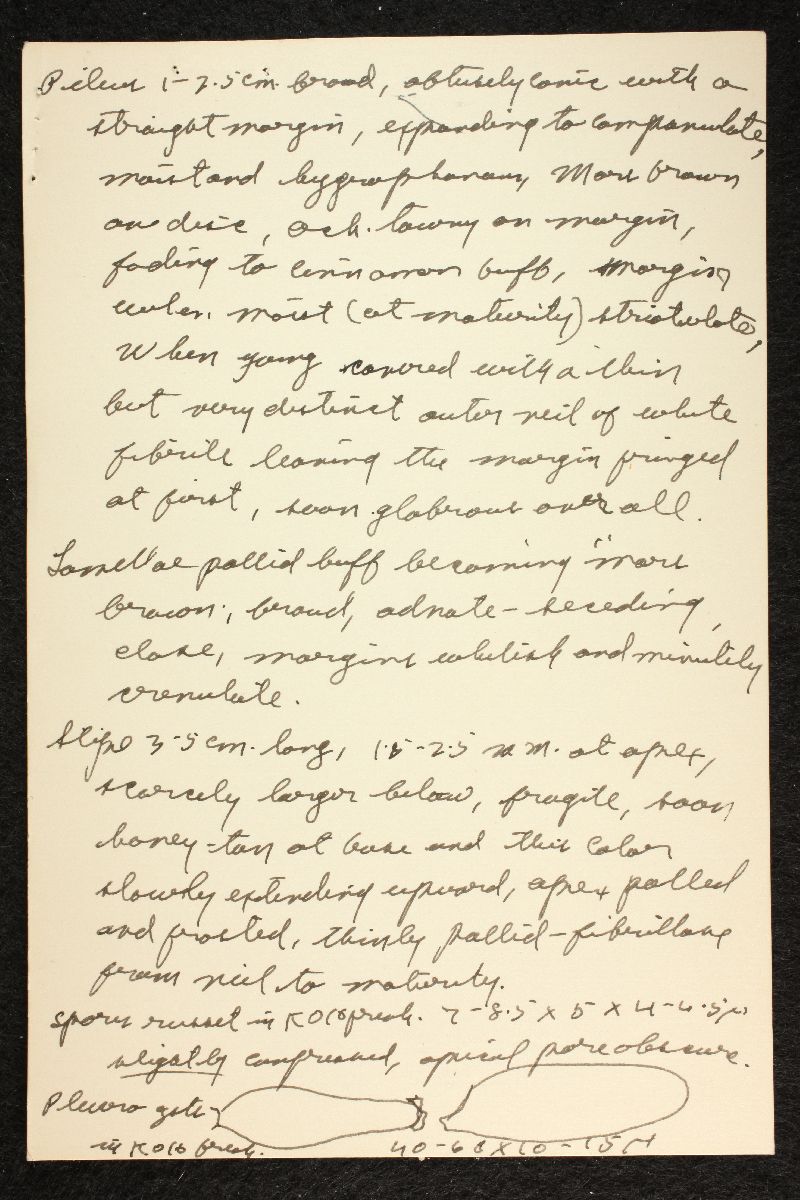 Pileus 1-2.5 cm. broad, obtusely conic with a
straight margin, expanding to campanulate,
moist and hygrophanous, Mars brown
on disc, och. tawny on margin,
fading to cinnamon buff, margin
when moist (at maturity) striatulate,
When young covered with a thin
but very distinct outer veil of white
fibrils leaving the margin fringed
at first, soon glabrous over all.
Lamellae pallid buff becoming "mars
brown", broad, adnate-seceding,
close, margins whitish and minutely
crenulate.
Stipe 3-5 cm. long, 1.5-2.5 mm. at apex,
scarcely larger below, fragile, soon
honey-tan at base and this color
slowly extending upward, apex pallid
and frosted, thinly pallid-fibrillose
from veil to maturity.
Spores russet in KOH fresh. 7-8.5 X 5 X 4-4.5μ
slightly compressed, apical pore obscure.
Pleuro cysts-
in KOH fresh. 40-60 X 10-15μ